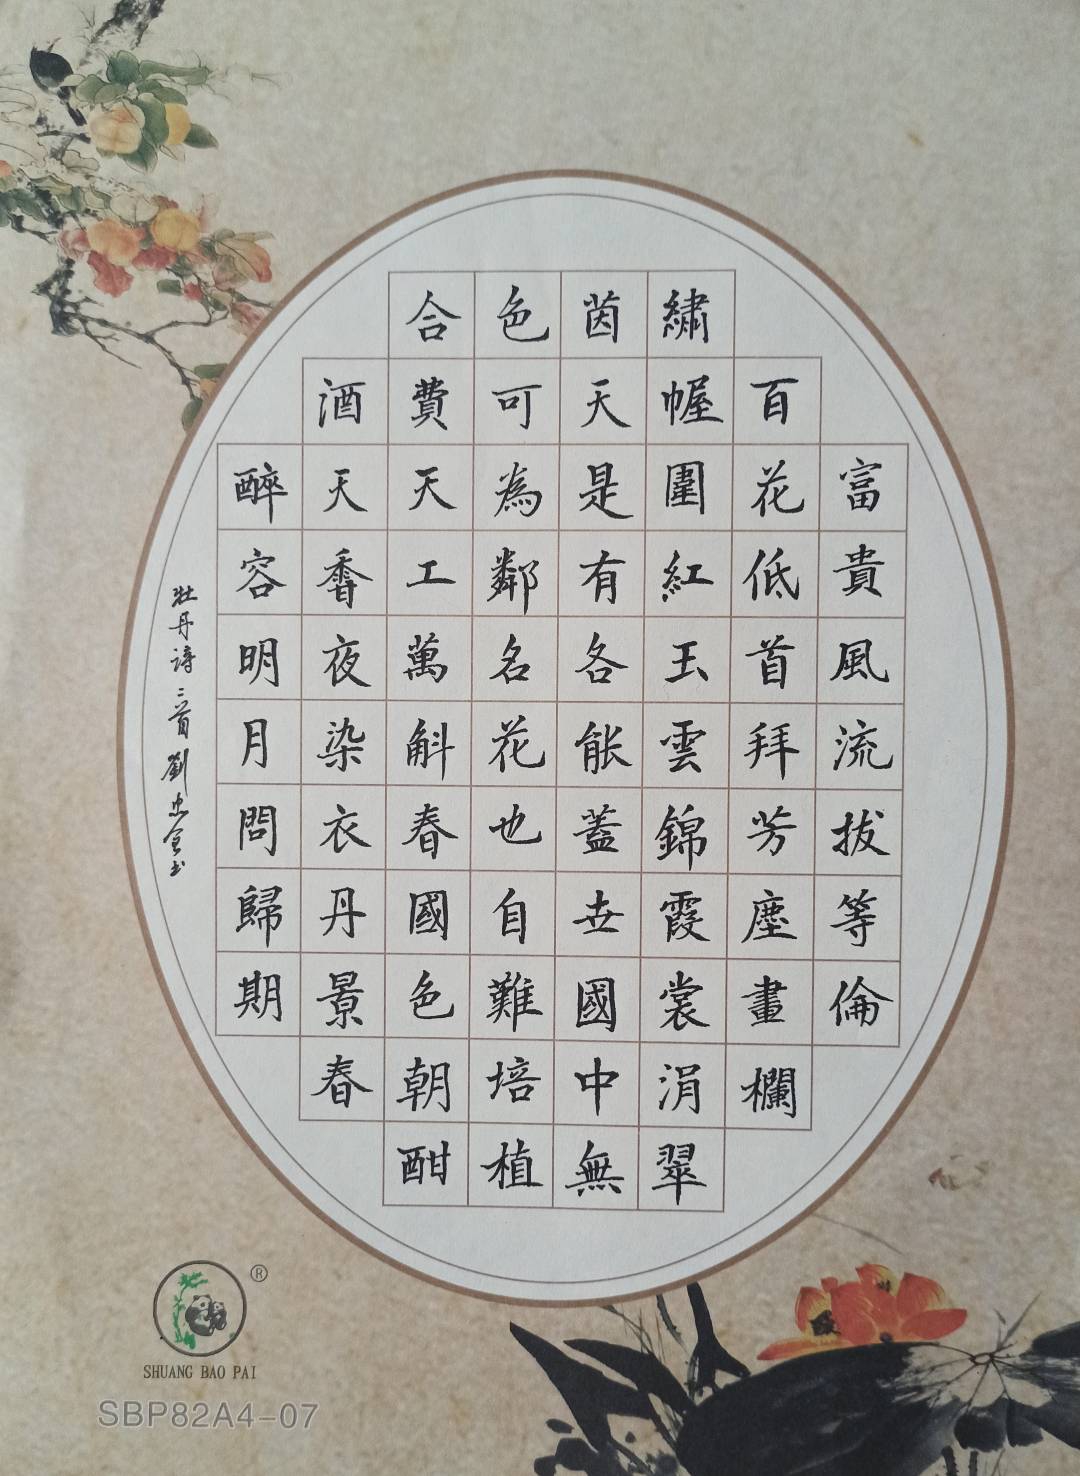 富貴風流拔等倫
百花低首拜芳塵畫欄
繡幄圍紅玉雲錦霞裳涓翠
茵天是有各能蓋世國中無
色可為鄰名花也自難培植
合費天工萬斛春國色朝酣
酒天香夜染衣丹景春
醉容明月問歸期
牡丹詩二首劉忠书
SHUANG BAO PAI
SBP82A4-07